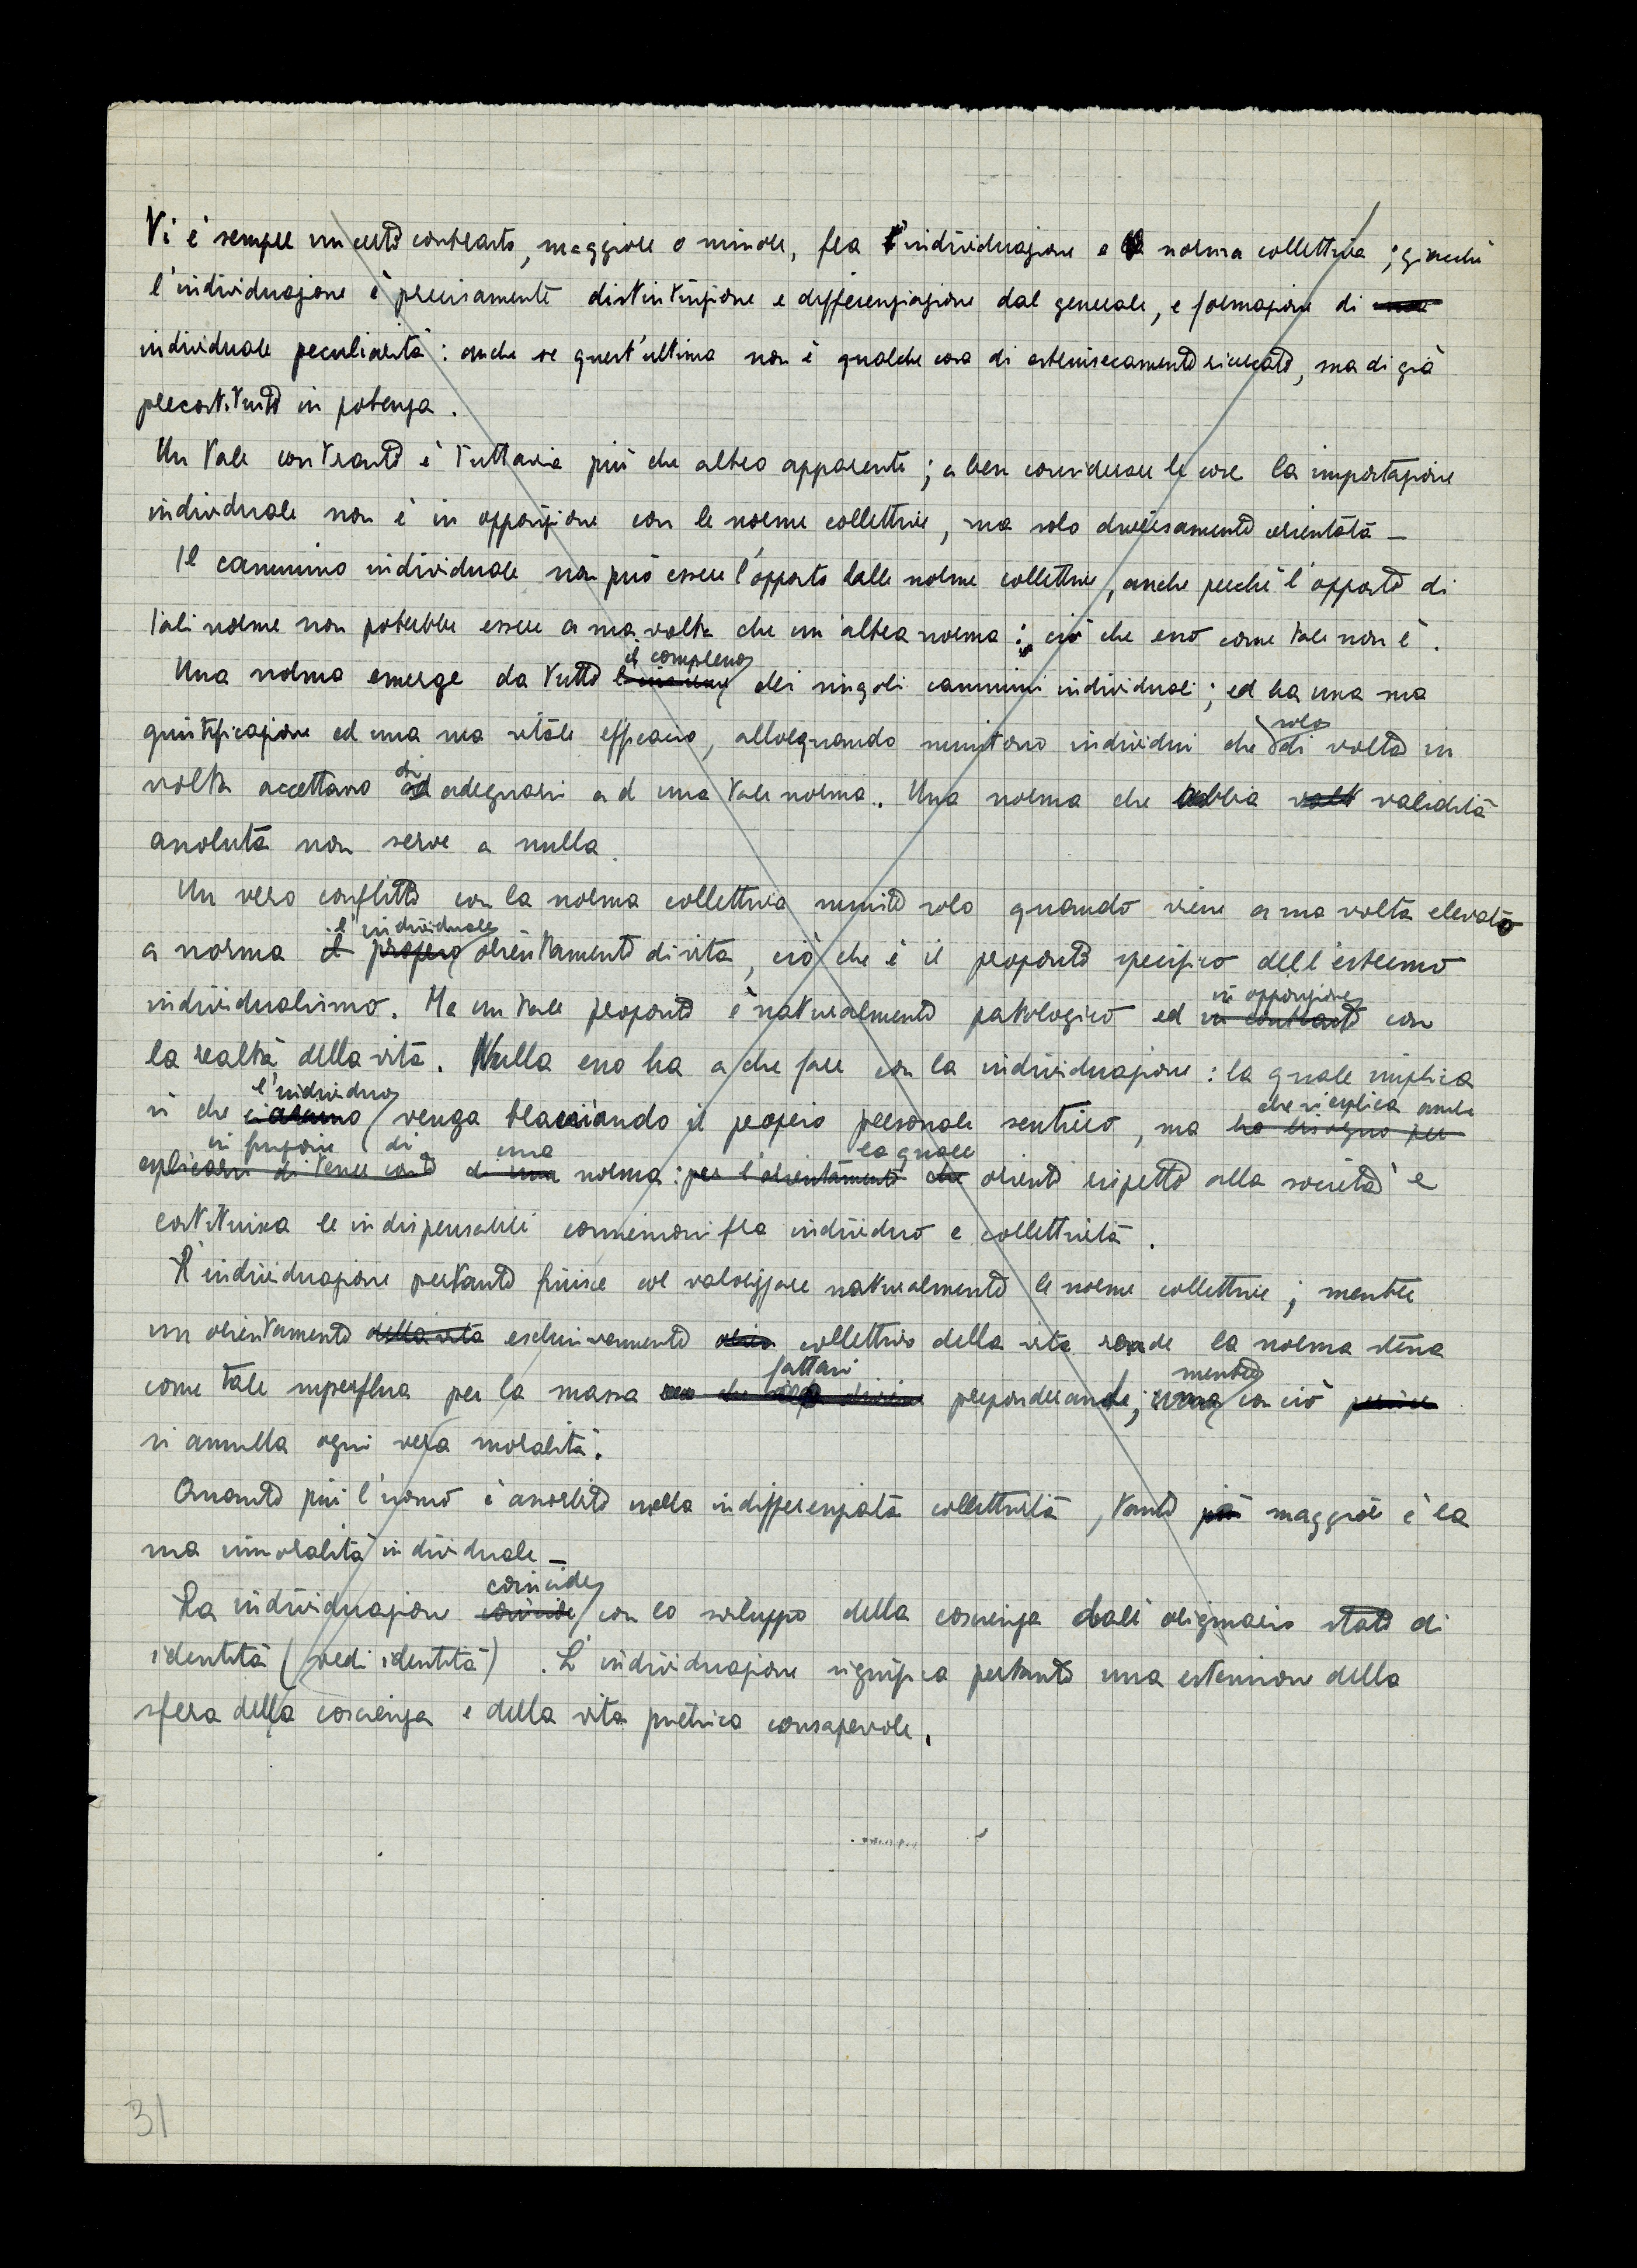 Vi è sempre un certo contrasto, maggiore o minore, fra l'individuazione e la norma collettiva ; giacché
l'individuazione è precisamente distintinzione e differenziazione dal generale, e formazione di
individuale peculiarità : anche se quest'ultima non è qualche cosa di estrinsecamente ricercato, ma di già
precostituito in potenza .
Un tale contrasto è tuttavia più che altro apparente ; a ben considerare le cose la impostazione
individuale non è in opposizione con le norme collettive, ma solo diversamente orientata _
Il cammino individuale non può essere l'opposto dalle norme collettive, anche perché l'opposto di
tali norme non potrebbe essere a sua volta che un'altra norma : ciò che esso come tale non è .
il complesso
Una norma emerge da tutto l'insieme dei singoli cammini individuali ; ed ha una sua
solo
giustificazione ed una sua vitale efficacia, allorquando sussistono individui che di volta in
di
volta accettano ad adeguarsi ad una tale norma. Una norma che abbia valt validità
assoluta non serve a nulla.
Un vero conflitto con la norma collettiva sussiste solo quando viene a sua volta elevato
l'individuale
a norma il proprio orientamento di vita, ciò che è il proposito specifico dell'estremo
in opposizione
individualismo. Ma un tale proposito è naturalmente patologico ed in contrasto con
la realtà della vita. Nulla esso ha a che fare con la individuazione : la quale implica
l'individuo che si esplica anche
sì che ciascuno venga tracciando il proprio personale sentiero, ma ha bisogno per
in funzione di una la quale
esplicarsi di tener conto di una norma : per l'orientamento che orienti rispetto alla società e
costituisca le indispensabili connessioni fra individuo e collettività .
L'individuazione pertanto finisce col valorizzare naturalmente le norme collettive ; mentre
un orientamento della vita esclusivamente collettivo della vita rende la norma stessa
fattasi mentre
come tale superflua per la massa preponderante ; con ciò
si annulla ogni vera moralità.
Quanto più l'uomo è assorbito nella indifferenziata collettività, tanto più maggiore è la
sua immoralità individuale _
coincide
La individuazione coincide con lo sviluppo della coscienza dall'originario stato di
identità (vedi identità) . L'individuazione significa pertanto una estensione della
sfera della coscienza e della vita psichica consapevole.
31